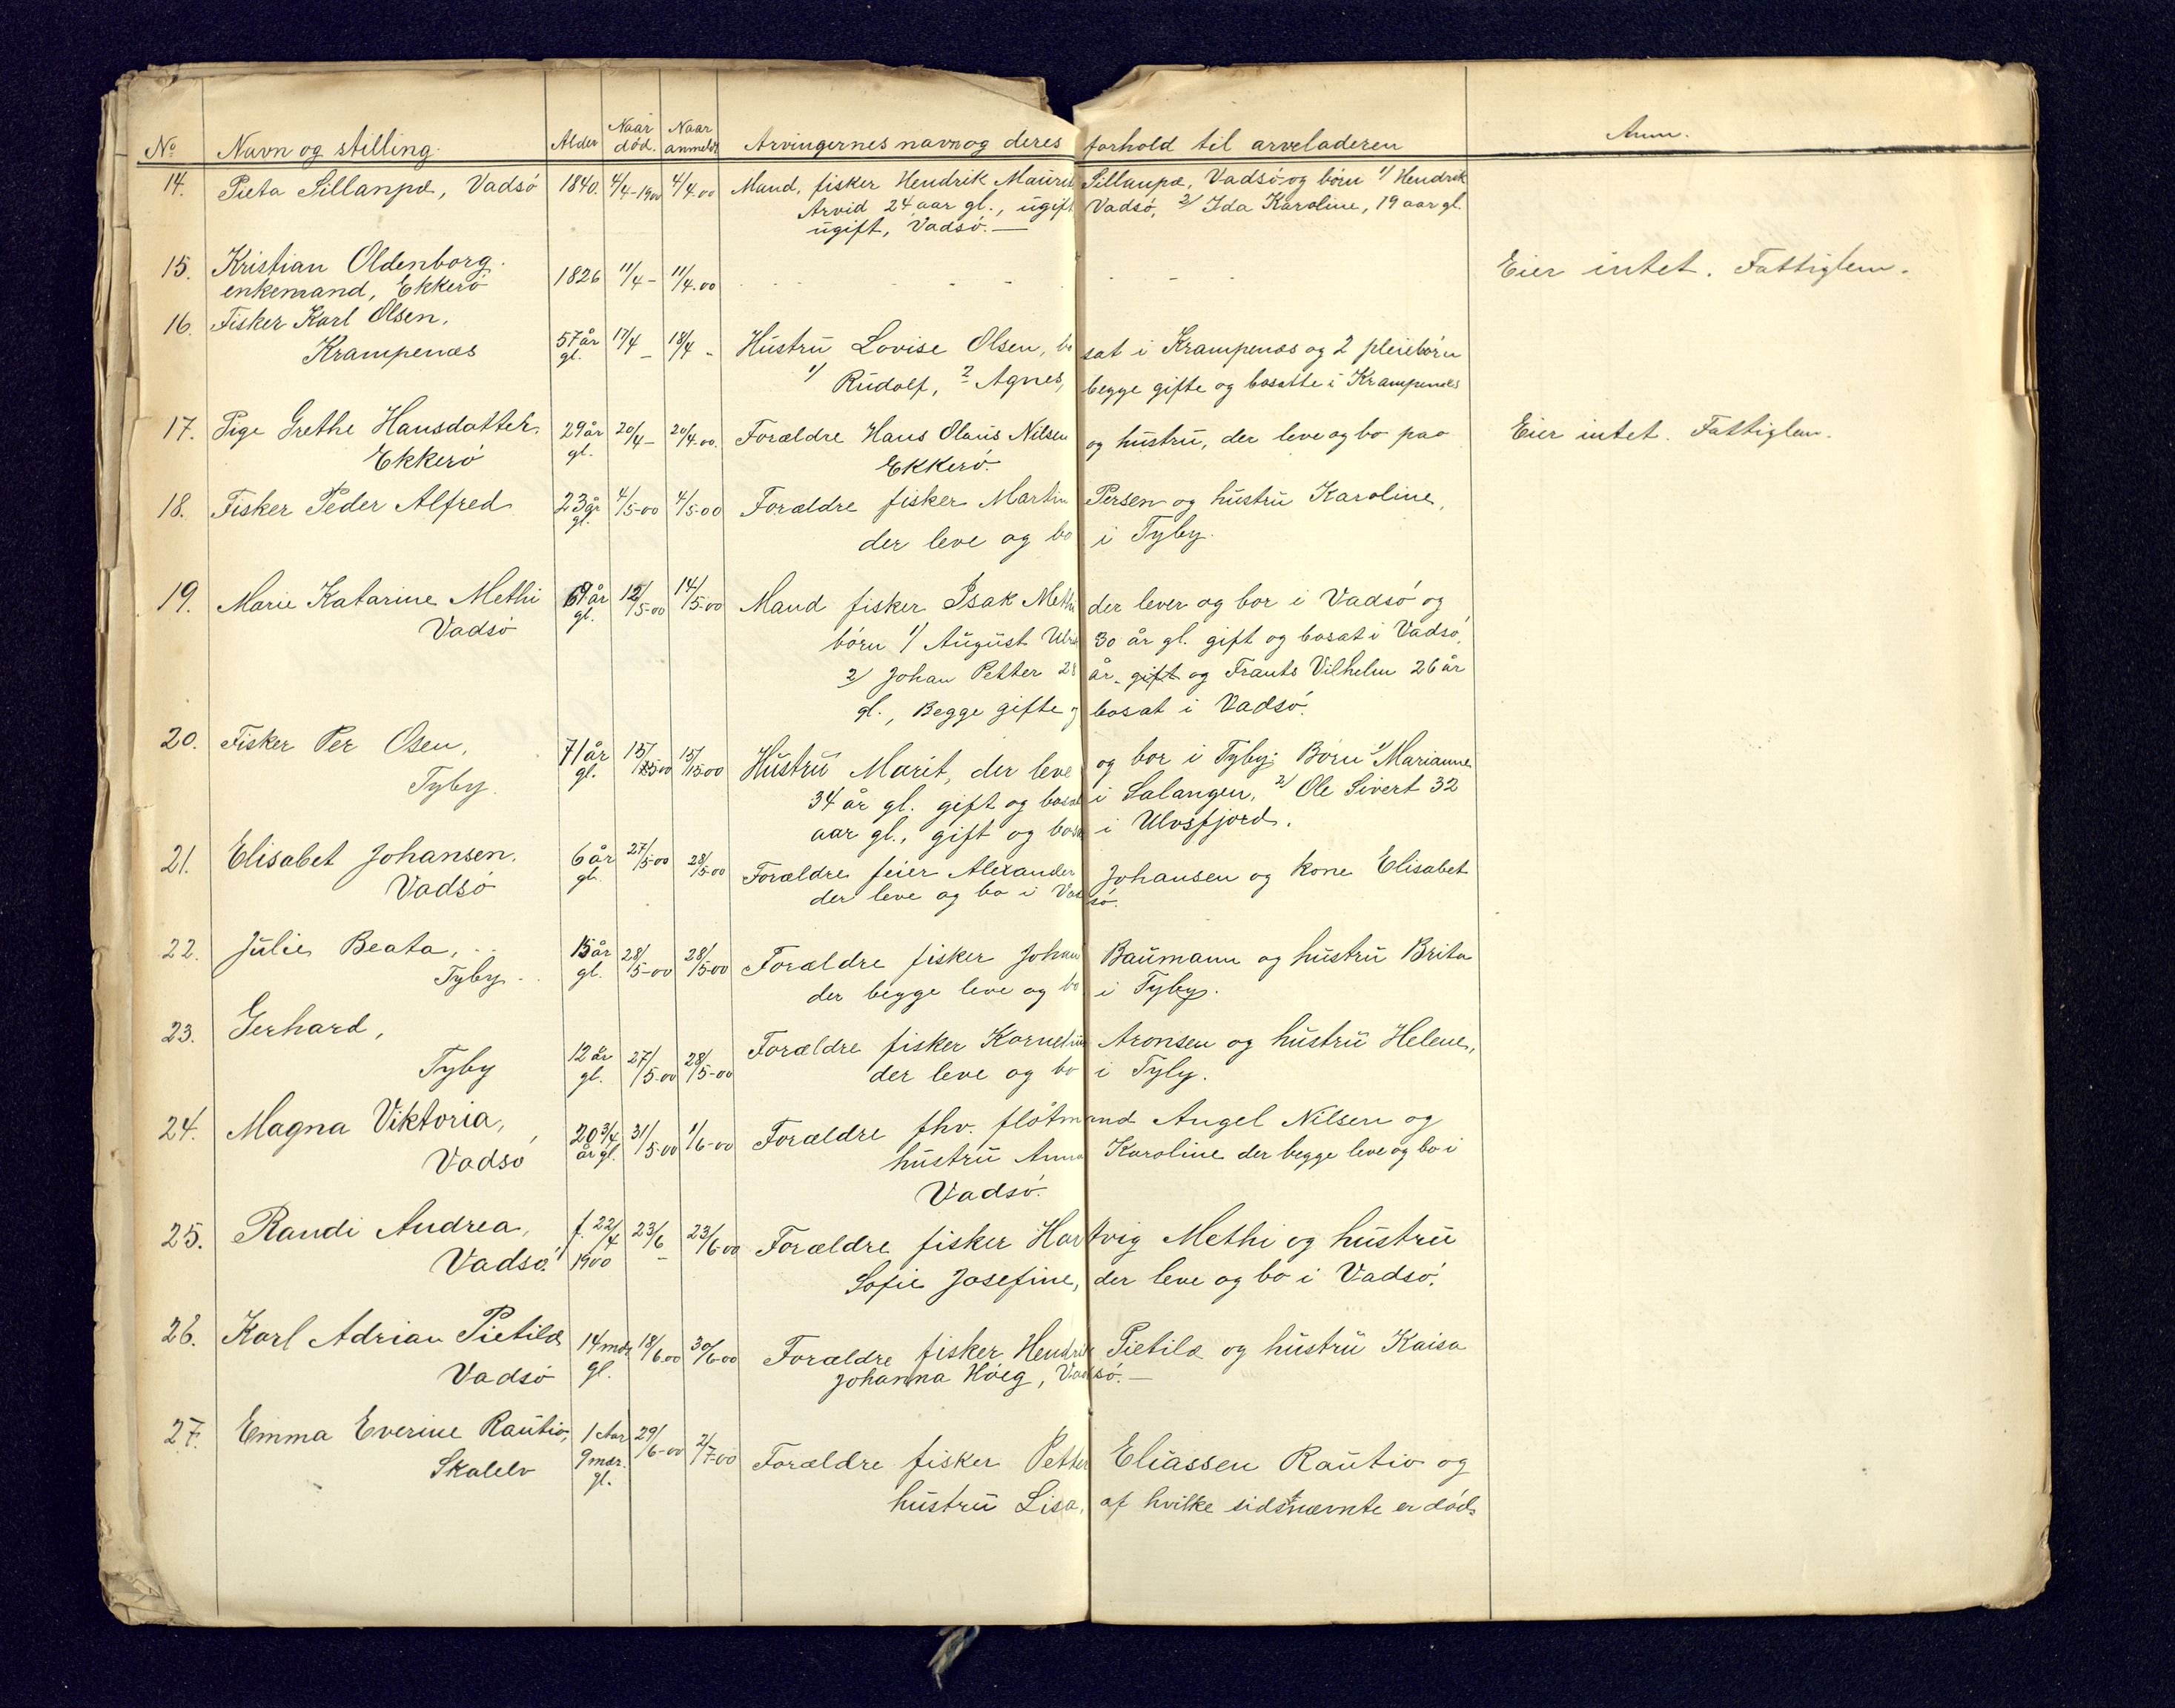 No Navn og stilling. Alder Naar død. Naar anmeldt Arvingernes navn og deres forhold til arveladeren Anm.
14. Pieta Sillanpæ, Vadsö 1840. 4/4-1900 4/4.00 Mand, fisker Hendrik Maurits Sillanpæ, Vadsö og börn 1/ Hendrik
Arvid 24 aar gl., ugift Vadsö, 2/ Ida Karoline, 19 aar gl.
ugift, Vadsö. —
15. Kristian Oldenborg.
enkemand, Ekkerö 1826 11/4 - 11/4.00 - - - - - - Eier intet. Fattiglem.
16. Fisker Karl Olsen,
Krampenæs 57 år gl. 17/4 - 18/4 - Hustru Lovise Olsen, bosat i Krampenæs og 2 pleiebörn
1/ Rudolf, 2 Agnes, begge gifte og bosatte i Krampenæs
17. Pige Grethe Hansdatter. 29 år gl. 20/4 - 20/4.00. Forældre Hans Olaus Nilsen og hustru, der leve og bo paa Eier intet. Fattiglem.
Ekkerö Ekkerö.
18. Fisker Peder Alfred 23 år gl. 4/5-00 4/5-00 Forældre fisker Martin Persen og hustru Karoline,
der leve og bo i Tyby.
19. Marie Katarine Methi 69 år gl. 12/5-00 14/5-00 Mand fisker Isak Methi der lever og bor i Vadsö og
Vadsö börn 1/ August Ulrik 30 år gl. gift og bosat i Vadsö,
2/ Johan Petter 28 år. gift og Frants Vilhelm 26 år
gl., Begge gifte og bosat i Vadsö.
20. Fisker Per Osen, 71 år gl. 13/5-00 15/5-00 Hustru Marit, der leve og bor i Tyby; Börn 1/ Marianne
Tyby. 34 år gl. gift og bosat i Salangen, 2/ Ole Sivert 32
aar gl., gift og bosat i Ulvsfjord.
21. Elisabet Johansen. 6 år gl. 27/5-00 28/5-00 Forældre feier Alexander Johansen og kone Elisabet
Vadsö der leve og bo i Vadsö.
22. Julie Beata, 15 år gl. 28/5-00 28/5-00 Forældre fisker Johan Baumann og hustru Brita
Tyby der begge leve og bo i Tyby.
23. Gerhard,
Tyby 12 år gl. 27/5-00 28/5-00 Forældre fisker Kornelius Aronsen og hustru Helene,
der leve og bo i Tyby.
24. Magna Viktoria, 20 3/4 år gl. 31/5-00 1/6-00 Forældre fhv. flötmand Angel Nilsen og
Vadsö hustru Anna Karoline der begge leve og bo i
Vadsö.
25. Randi Andrea, f. 22/4 1900 23/6 - 23/6-00 Forældre fisker Hartvig Methi og hustru
Vadsö. Sofie Josefine, der leve og bo i Vadsö.
26. Karl Adrian Pietilæ 14 mdr. gl. 18/6.00 30/6-00 Forældre fisker Hendrik Pietilæ og hustru Kaisa
Vadsö Johanna Höeg, Vadsö. —
27. Emma Everine Rautio, 1 Aar 9 mdr. gl. 29/6-00 2/7-00 Forældre fisker Petter Eliassen Rautio og
Skalelv hustru Lisa, af hvilke sidstnævnte er död